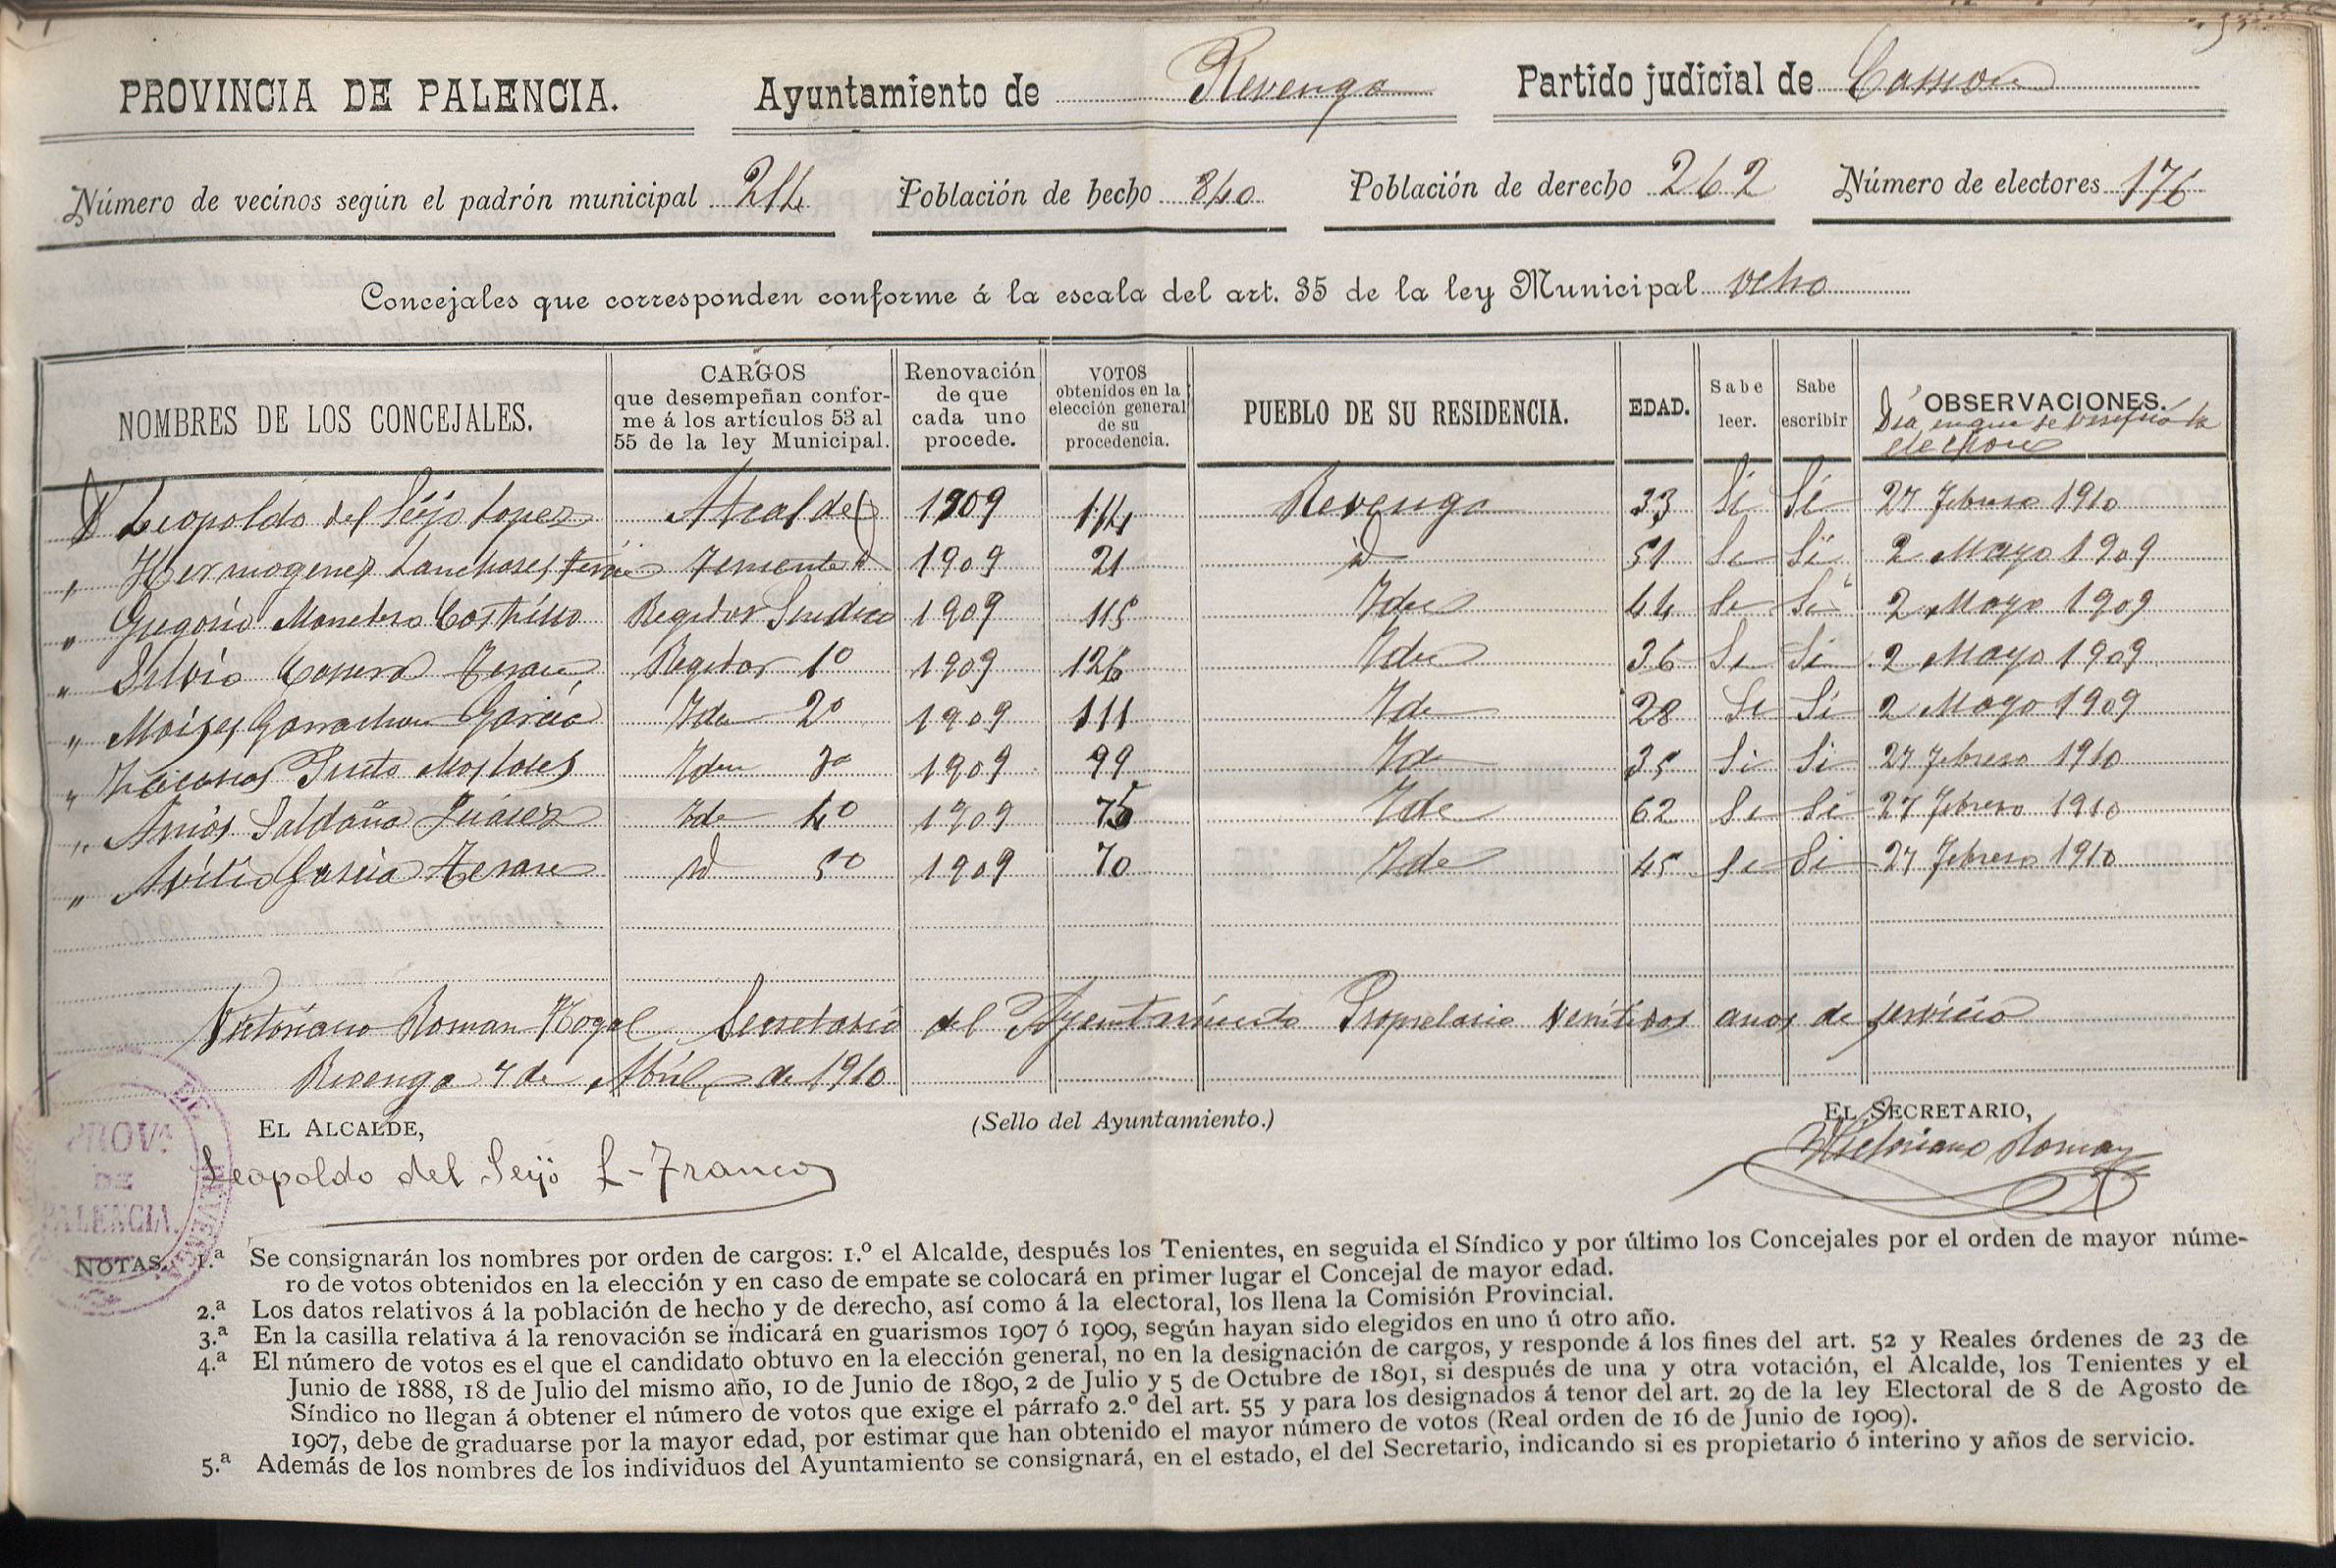 PROVINCIA DE PALENCIA. Ayuntamiento de Revenga Partido judicial de Carrion
Número de vecinos según el padrón municipal 214 Población de hecho 840 Población de derecho 262 Número de electores 176
Concejales que corresponden conforme á la escala del art. 35 de la ley Municipal ocho
NOMBRES DE LOS CONCEJALES.
CARGOS
que desempeñan confor-
me á los artículos 53 al
55 de la ley Municipal.
Renovación
de que
cada uno
procede.
VOTOS
obtenidos en la
elección general
de su
procedencia.
PUEBLO DE SU RESIDENCIA.
EDAD.
Sabe
leer.
Sabe
escribir
OBSERVACIONES.
Dia en que se verificó la
eleccion
D Leopoldo del Séijo Lopez Alcalde 1909 114 Revenga 33 Si Si 27 Febrero 1910
" Hermogenes Teniente 1909 21 id 51 Si Si 2 Mayo 1909
" Gregorio Castrillo Regidor Sindico 1909 115 Iden 44 Si Si 2 Mayo 1909
" Silvio Teran Regidor 1º 1909 126 Iden 36 Si Si 2 Mayo 1909
" Moises Garrachon Garcia Iden 2º 1909 111 Ide 28 Si Si 2 Mayo 1909
" Iden 3º 1909 99 Ide 35 Si Si 27 Febrero 1910
" Saldaña Ide 4º 1909 75 Ide 62 Si Si 27 Febrero 1910
" Garcia Teran id 5º 1909 70 Ide 45 Si Si 27 Febrero 1910
Victoriano Roman Nogal Secretario del Ayuntamiento Propietario veintidos anos de servicio
Revenga 7 de Abril de 1910
EL ALCALDE,
(Sello del Ayuntamiento.)
EL SECRETARIO,
Leopoldo del Seijo L-Franco
Victoriano Roman
PROVA
DE
PALENCIA
NOTAS. 1.ª Se consignarán los nombres por orden de cargos: 1.º el Alcalde, después los Tenientes, en seguida el Síndico y por último los Concejales por el orden de mayor núme-
ro de votos obtenidos en la elección y en caso de empate se colocará en primer lugar el Concejal de mayor edad.
2.ª Los datos relativos á la población de hecho y de derecho, así como á la electoral, los llena la Comisión Provincial.
3.ª En la casilla relativa á la renovación se indicará en guarismos 1907 ó 1909, según hayan sido elegidos en uno ú otro año.
4.ª El número de votos es el que el candidato obtuvo en la elección general, no en la designación de cargos, y responde á los fines del art. 52 y Reales órdenes de 23 de
Junio de 1888, 18 de Julio del mismo año, 10 de Junio de 1890, 2 de Julio y 5 de Octubre de 1891, si después de una y otra votación, el Alcalde, los Tenientes y el
Síndico no llegan á obtener el número de votos que exige el párrafo 2.º del art. 55 y para los designados á tenor del art. 29 de la ley Electoral de 8 de Agosto de
1907, debe de graduarse por la mayor edad, por estimar que han obtenido el mayor número de votos (Real orden de 16 de Junio de 1909).
5.ª Además de los nombres de los individuos del Ayuntamiento se consignará, en el estado, el del Secretario, indicando si es propietario ó interino y años de servicio.